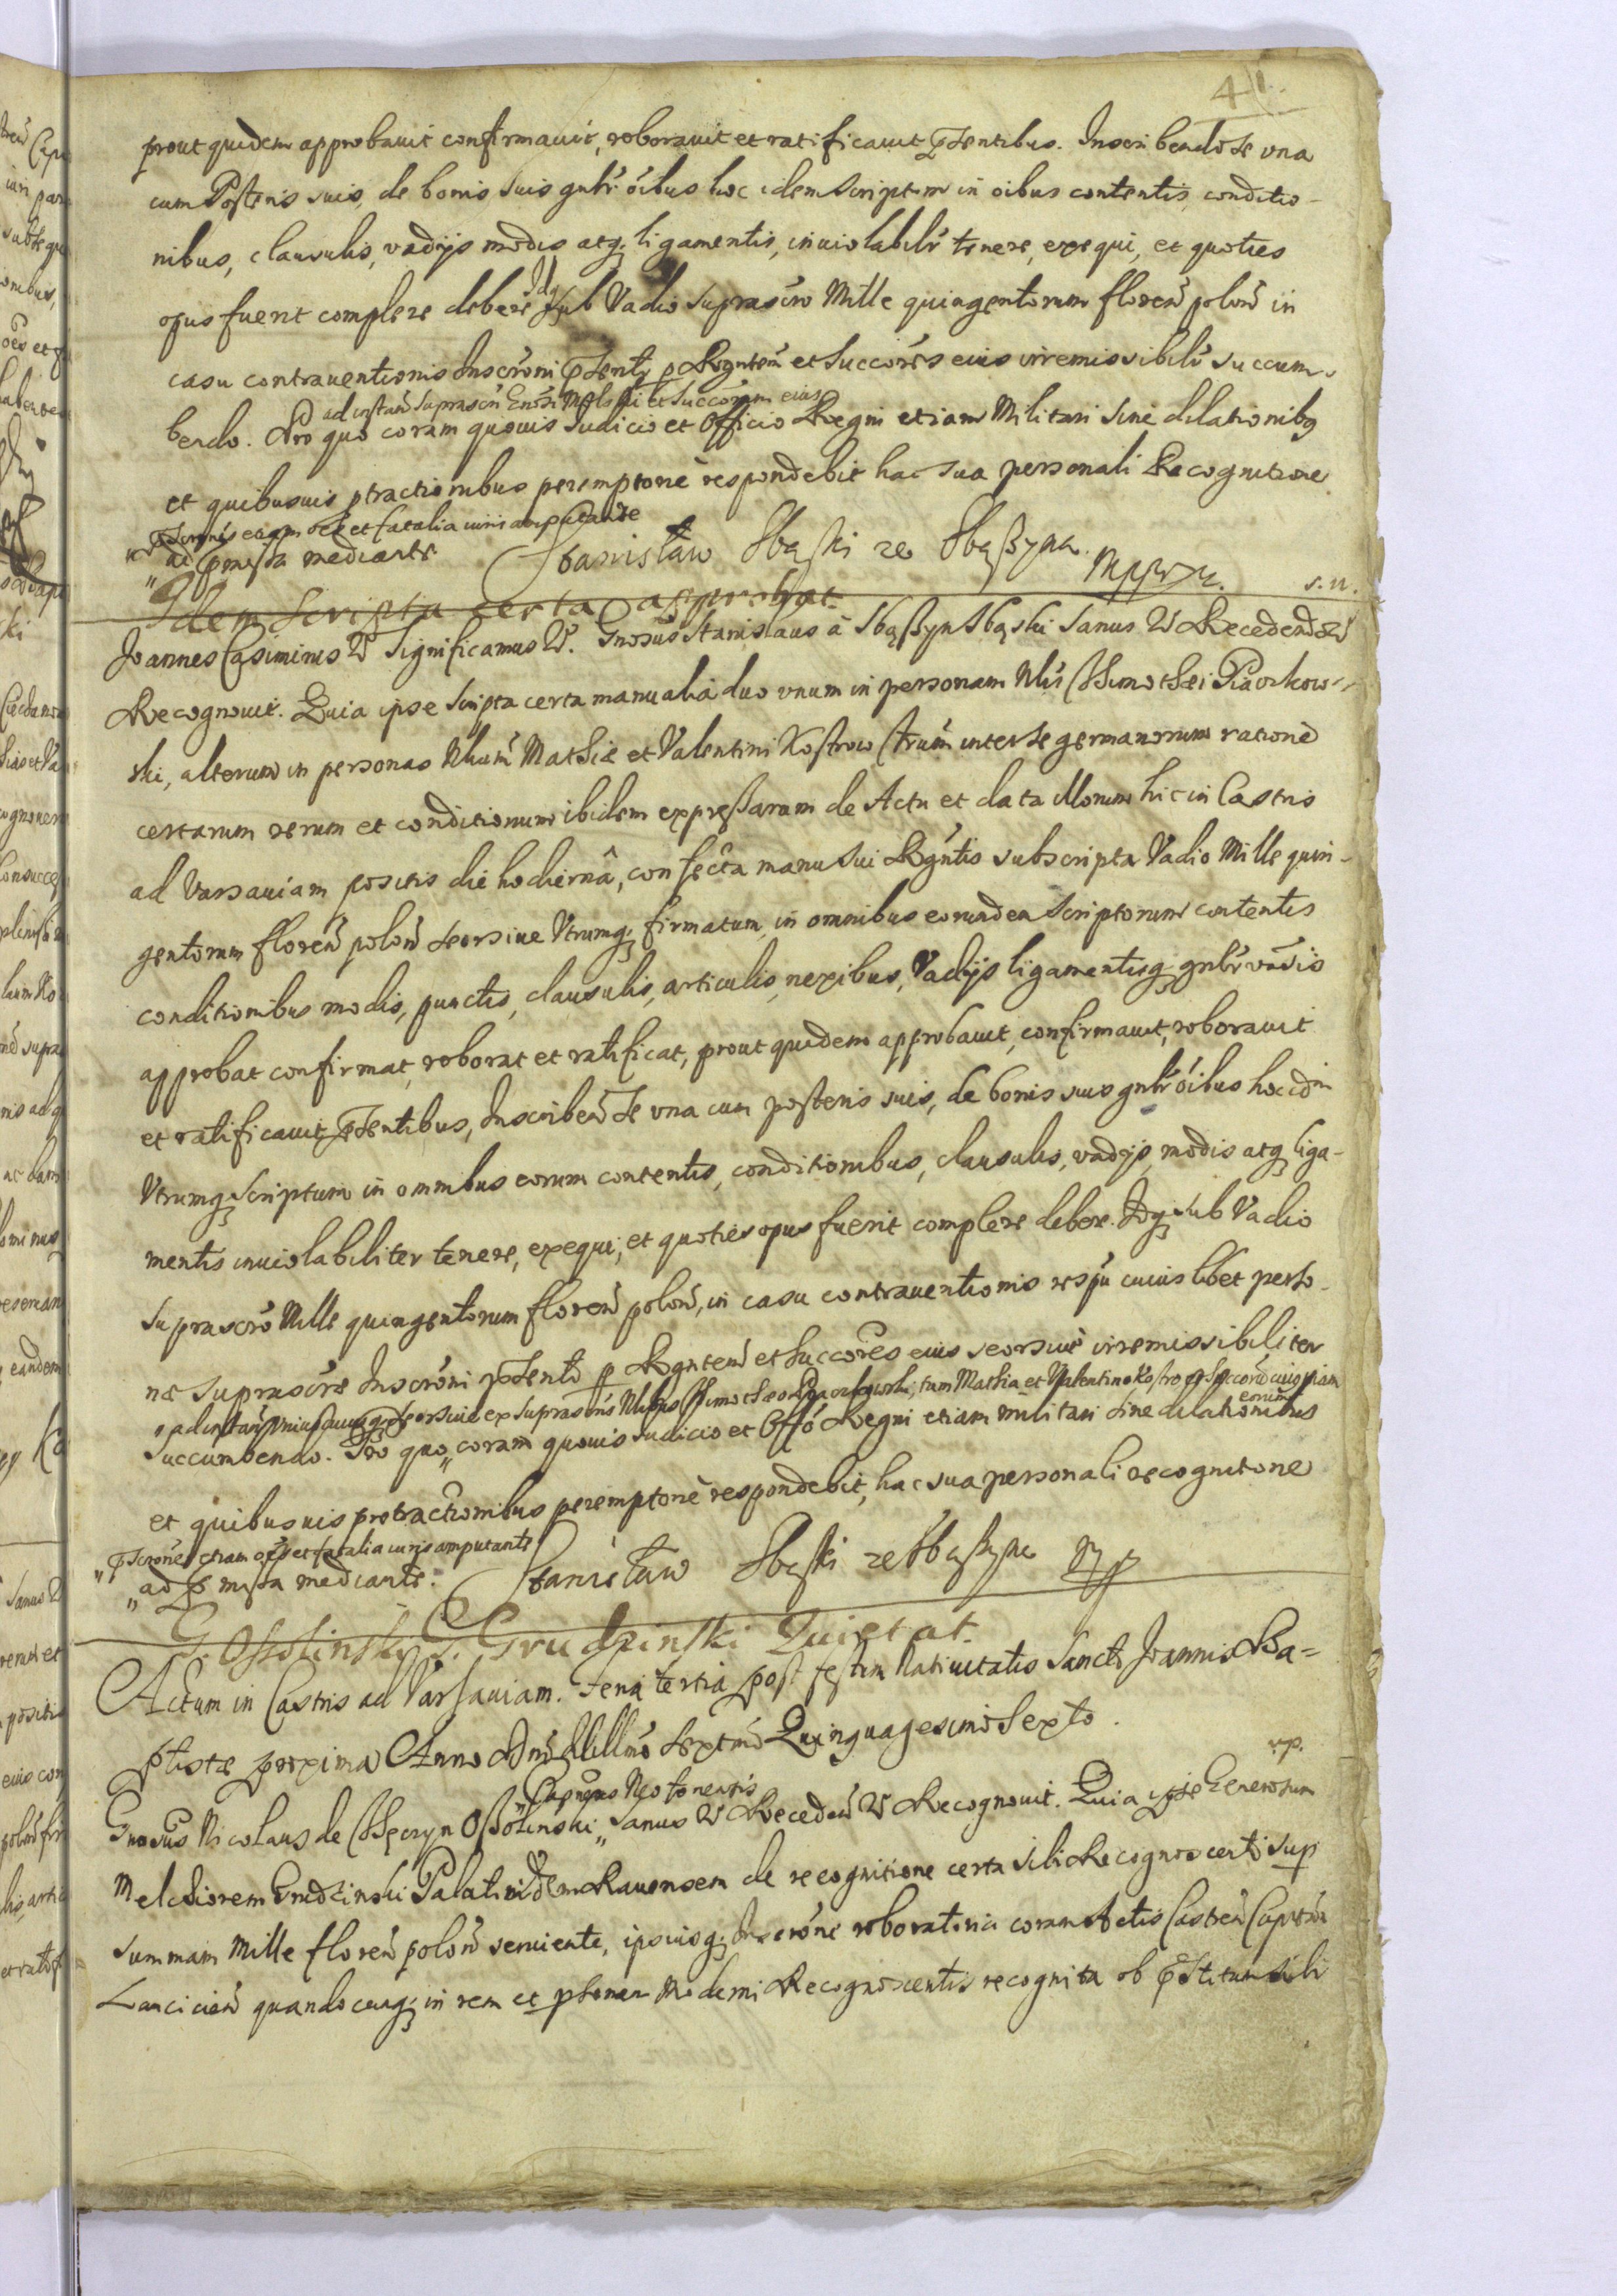 41.
prout quidem approbavit confirmavit, roboravit et ratificavit pñtibus. Inscribendo se una
cum Posteris suis, de bonis suis gnlr oibus hoc idem Scriptum in oibus contentis, conditio-
nibus, clausulis, vadijs modis atq; ligamentis, inviolabilr tenere, exequi, et quoties
opus fuerit complere debere Idq; sub Vadio suprascro Mille quingentorum floren polon in
casu contraventionis Inscrōni pñti p Rcgntem et Succōres eius irremissibilr succum-
ad instan suprascri Gnosi et Succōrum eius
bendo. Pro quo coram quovis Iudicio et Officio Regni etiam Militari sine dilationibq
et quibusvis ptractionibus peremptorie respondebit hac sua personali Recognitione
pscrōnes etiam oes et fatalia iuris amputante
ad pmissa mediante Stanisław Zbąski ze Zbąszynia mppr.
s. n.
Idem Scripta certa approbat.
Joannes Casimirus Significamus. Gnosus Stanislaus à Zbąszyn Zbąski Sanus Recedendo
Recognovit. Quia ipse scripta certa manualia duo unum in personam Nlis Piaczkow-
ski, alterum in personas Nlium Mathiæ et Valentini Kostrow inter se germanorum ratione
certarum rerum et conditionum ibidem expressarum de Actu et data illorum hic in Castris
ad Varsaviam positis die hodierna, confecta manu sui Rcgntis subscripta Vadio Mille quin-
gentorum floren polon seorsive Utrumq; firmatum, in omnibus eorundem Scriptorum contentis
conditionibus modis, punctis, clausulis, articulis, nexibus, Vadijs ligamentisq; gnlr
approbat confirmat, roborat et ratificat, prout quidem approbavit, confirmavit, roboravit
et ratificavit pñtibus, Inscriben se una cum posteris suis, de bonis suis gnlr oibus hoc idm
Utrumq; Scriptum in omnibus eorum contentis, conditionibus, clausulis, vadijs, modis atq; liga-
mentis inviolabiliter tenere, exequi, et quoties opus fuerit complere debere. Idq; sub Vadio
suprascro Mille quingentorum floren polon, in casu contraventionis respu cuius libet perso-
næ suprascræ Inscrōni pñti p Rcgntem et Succōres eius seorsive irremissibiliter
ad instan unius cuiusq; seorsive ex suprascris Nlibus tum Mathia et Valentino Kostro Succorū cuiuspiam
eorum
succumbendo. Pro quo coram quovis Iudicio et Offo Regni etiam militari sine dilationibus
et quibusvis protractionibus peremptorie respondebit, hac sua personali recognitone
pscrōnes etiam oes et fatalia iuris amputante
ad pmissa mediante. Stanisław Zbąski ze Zbąszynia mp
G. Ossolinski G. Grudzinski Quietat.
Actum in Castris ad Varsaviam. Feria tertia post festum Nativitatis Sancti Joannis Ba-
ptistæ proxima Anno Dni Millmo Sextmo Quinquagesimo Sexto.
rp.
Capneus Nestonensis
Gnosus Nicolaus de Tęczyn Ossolinski Sanus Receden Recognovit. Quia ipse Generosum
Melchiorem Grudzinski Palatinidem Ravensem de recognitione certa sibi Recognoscenti sup
summam Mille floren polon serviente, ipsiusq; Inscrōne roboratoria coram Actis Castren Capitan
Lancicien quandocunq; in rem et psonam Moderni Recognoscentis recognita ob pstitum sibi